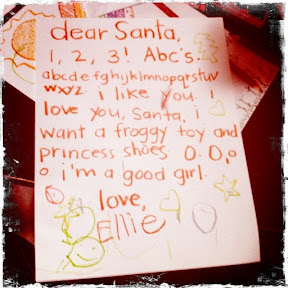 dear Santa,
1, 2, 3! Abc's.
abcdefghijklmnopqrstuv
wxyz. I like you. I
love you, Santa, i
want a froggy toy and
princess shoes. O. O, o
o i'm a good girl.
love,
Ellie